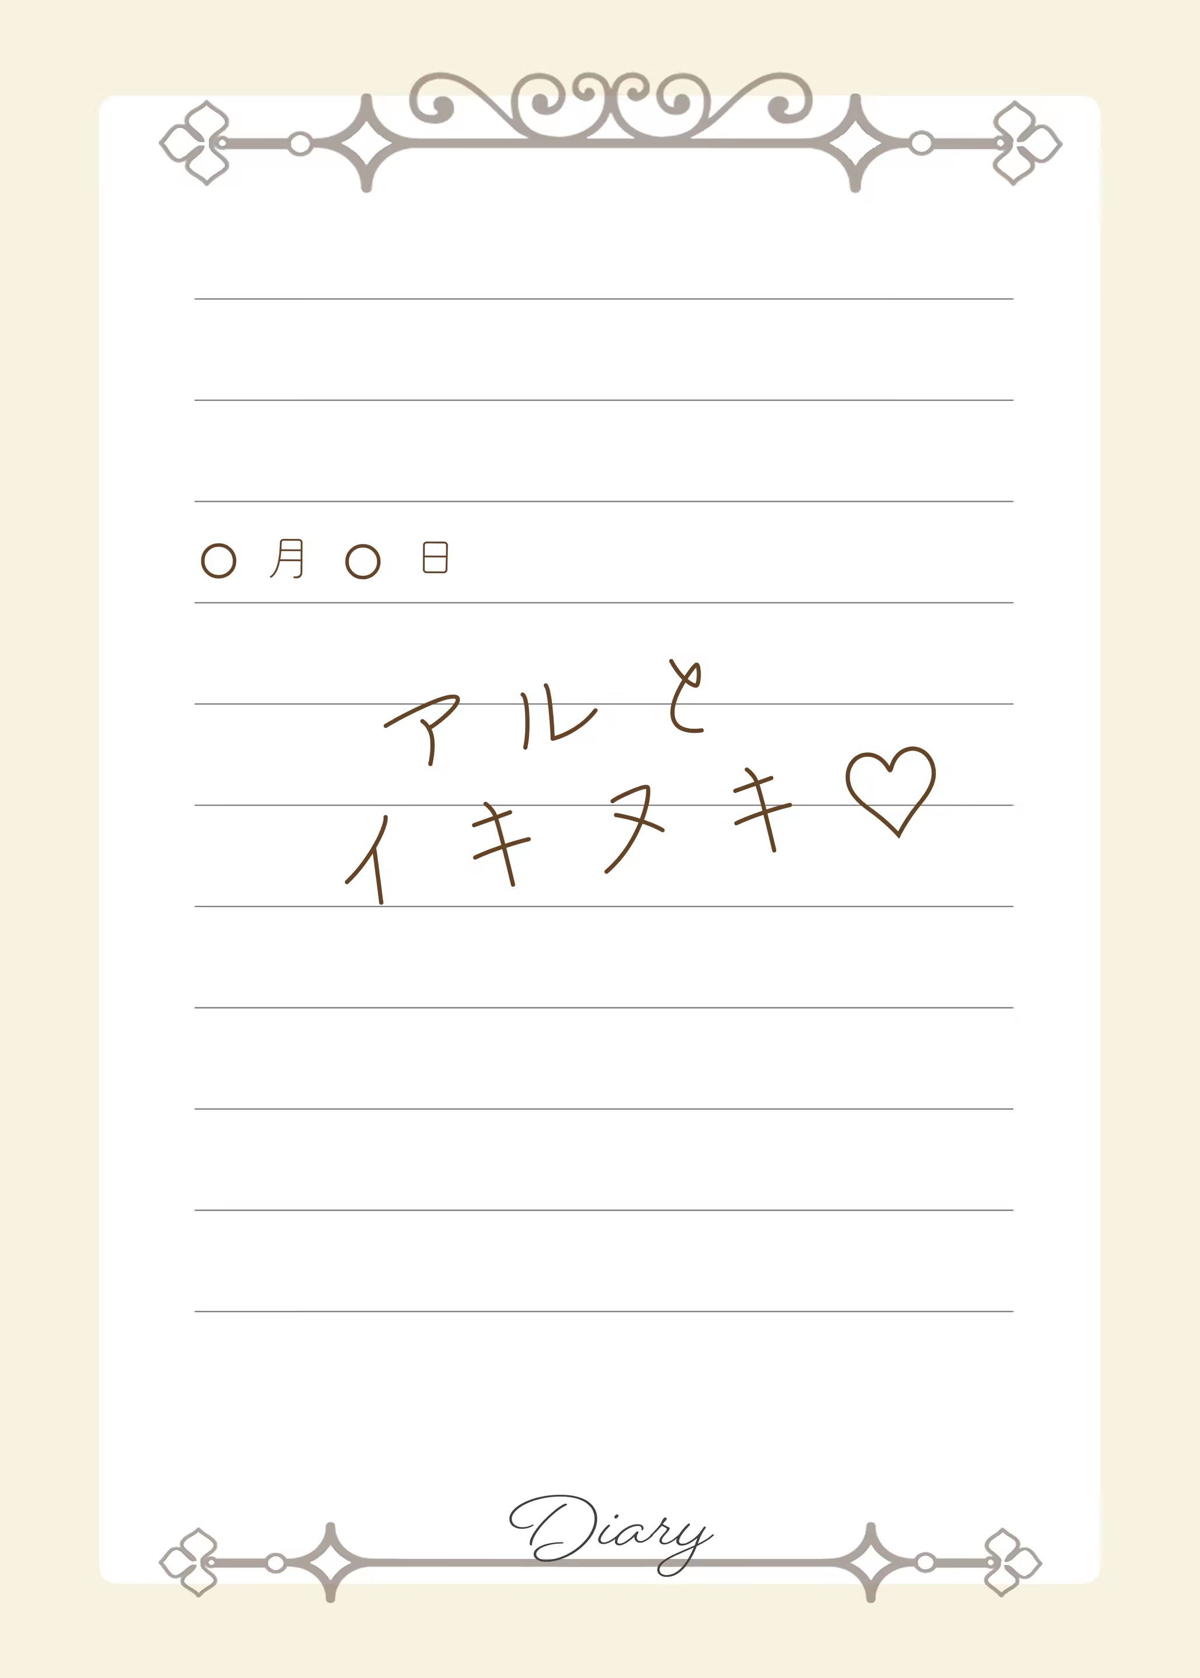 ○月○日
アルと
イキヌキ♡
Diary